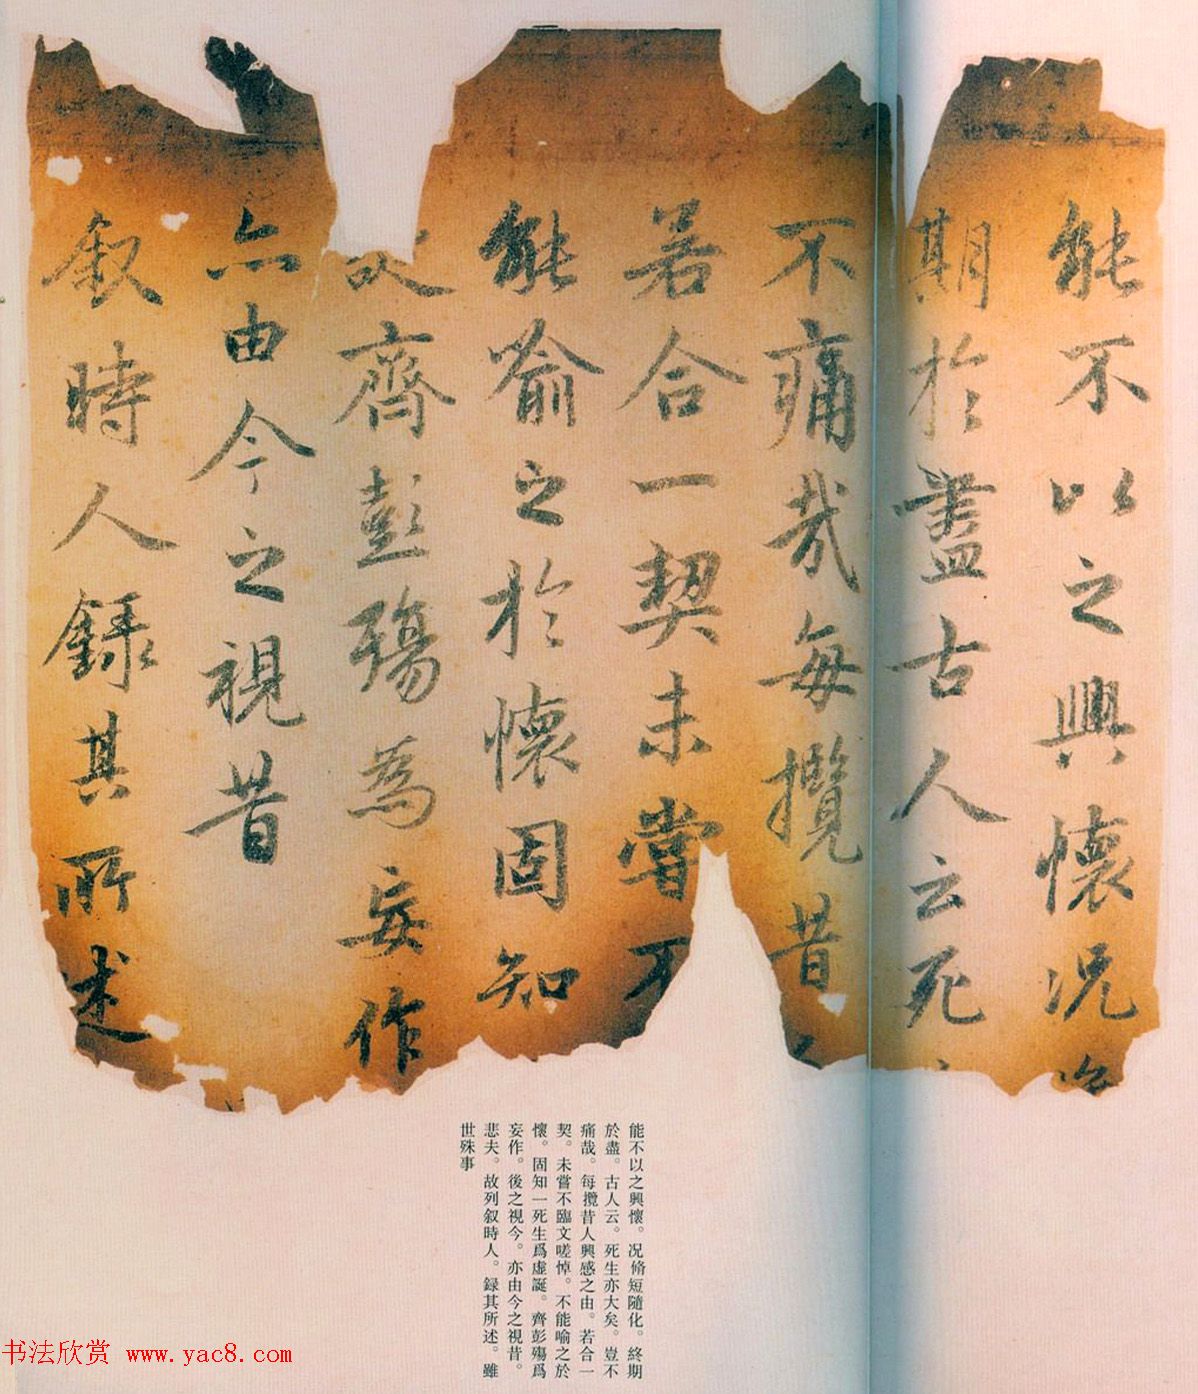 能不以之興懷况
期於盡古人云死
不痛哉每攬昔
若合一契未嘗不
能喻之於懷固知
齊彭殤為妄作
亦由今之視昔
叙時人録其所述
能不以之興懷。况脩短隨化。終期
於盡。古人云。死生亦大矣。豈不
痛哉。每攬昔人興感之由。若合一
契。未嘗不臨文嗟悼。不能喻之於
懷。固知一死生爲虛誕。齊彭殤爲
妄作。後之視今。亦由今之視昔。
悲夫。故列叙時人。録其所述。雖
世殊事
书法欣赏 www.yac8.com